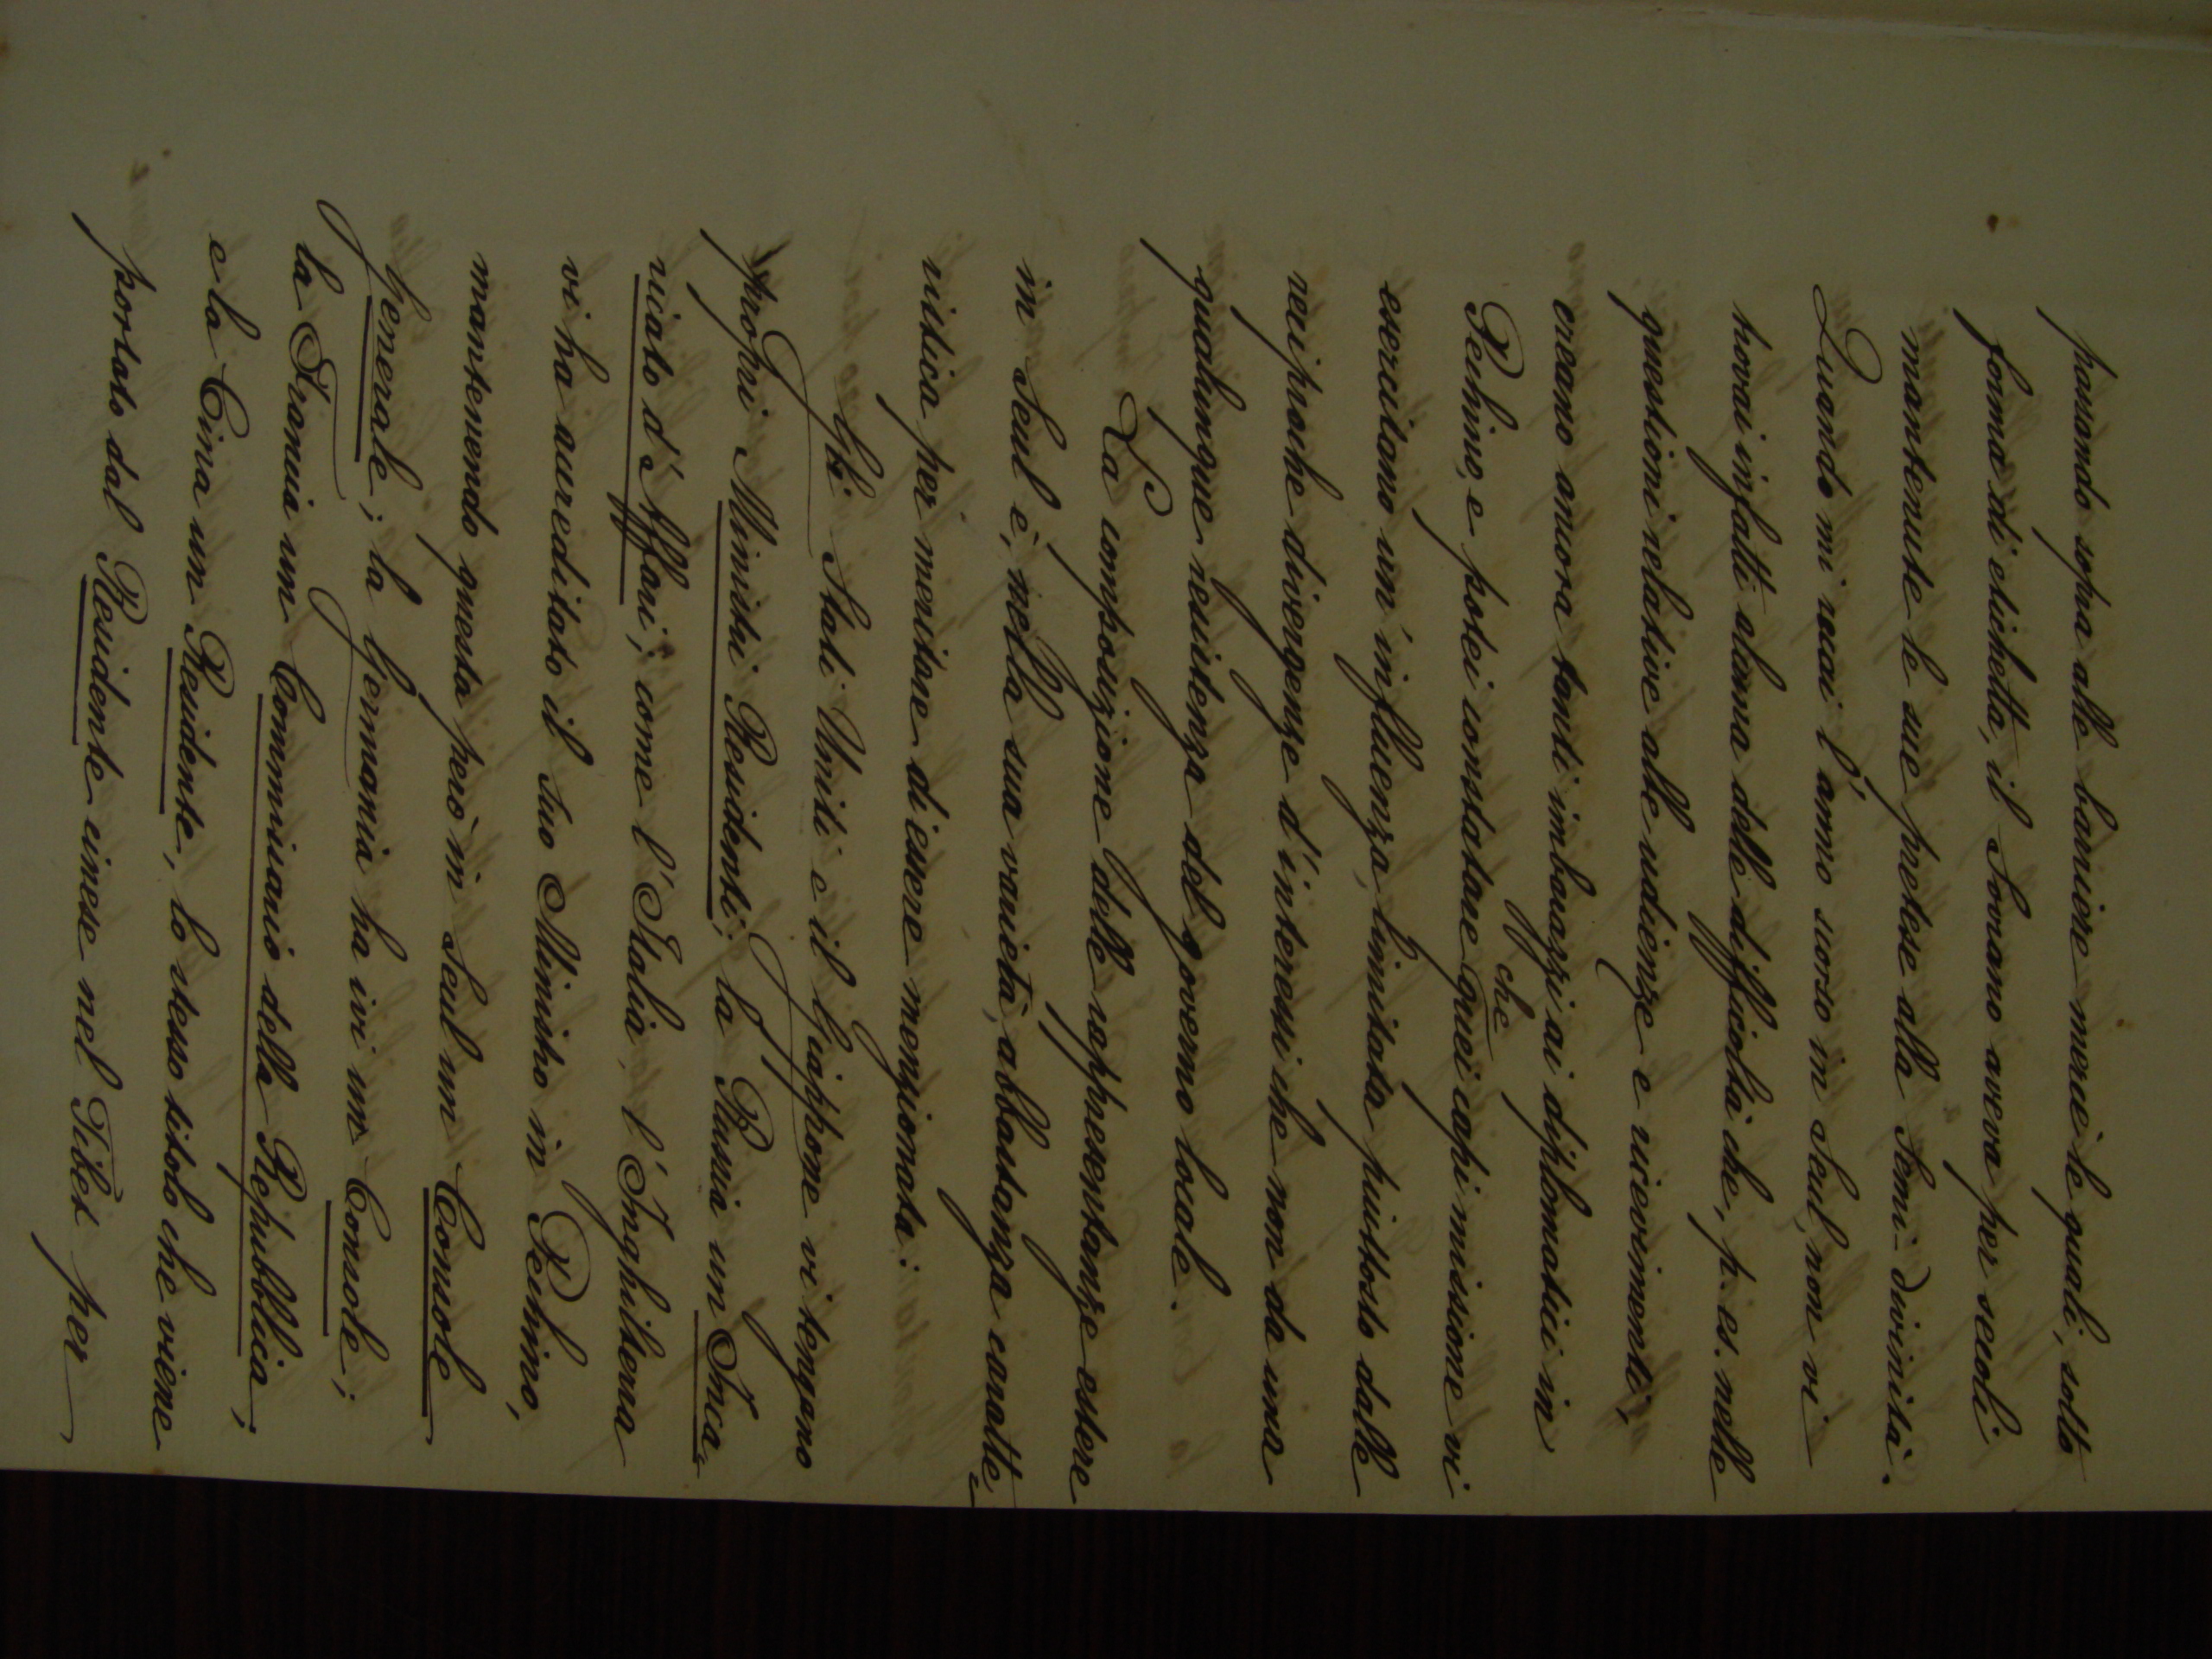 passando sopra alle barriere mercè le quali, sotto
forma di etichetta, il Sovrano aveva per secoli
mantenute le sue pretese alla Semi-divinità.
Quando mi recai l'anno scorso in Seul, non vi
trovai infatti alcuna delle difficoltà che, p. es. nelle
questioni relative alle udienze e ricevimenti,
creano ancora tanti imbarazzi ai diplomatici in
Pechino, e potei constatare che quei capi missione vi
esercitano un'influenza, limitata piuttosto dalle
reciproche divergenze d'interessi che non da una
qualunque resistenza del governo locale.
La composizione delle rappresentanze estere
in Seul è, nella sua varietà, abbastanza caratte-
ristica per meritare di essere menzionata:
Gli Stati Uniti e il Giappone vi tengono
proprî Ministri Residenti; la Russia un Inca-
ricato d'Affari; come l'Italia, l'Inghilterra
vi ha accreditato il suo Ministro in Pechino,
mantenendo questa però in Seul un Console
Generale; la Germania ha ivi un Console;
la Francia un Commissario della Repubblica;
e la Cina un Residente, lo stesso titolo che viene
portato dal Residente cinese nel Tibet per